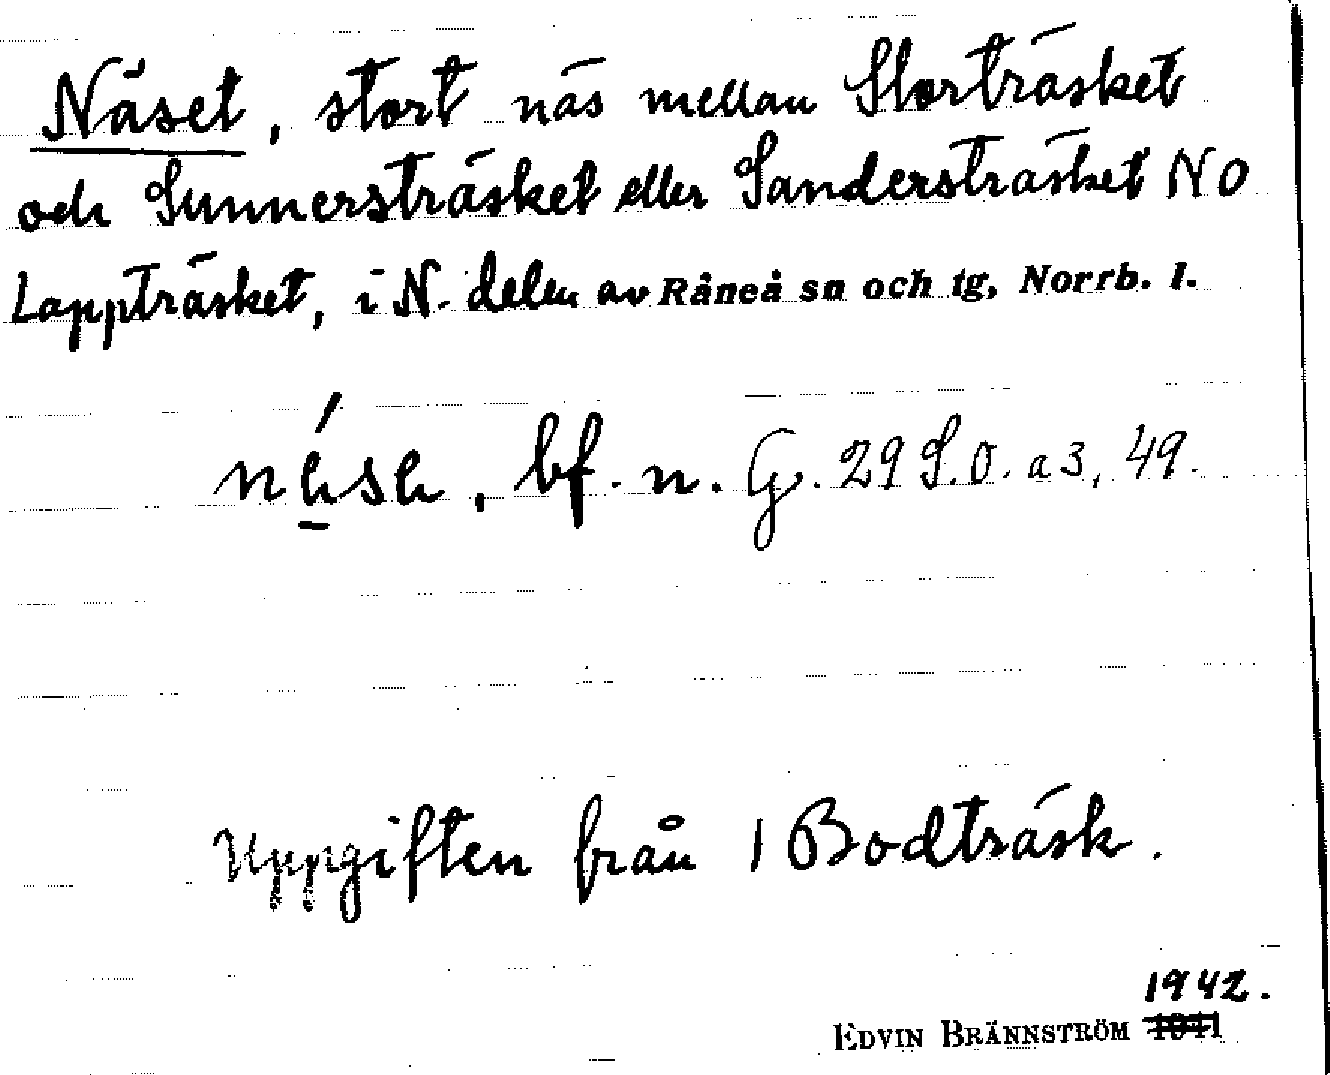 Näset, stort näs mellan Storträsket
och Sunnersträsket eller Sandersträsket NO
Lappträsket, i N. delen av Råneå sn och tg, Norrb. l.
bf. n. G. 29 S.O. a 3, 49.
Uppgiften från 1 Bodträsk.
1942.
EDVIN BRÄNNSTRÖM 1941